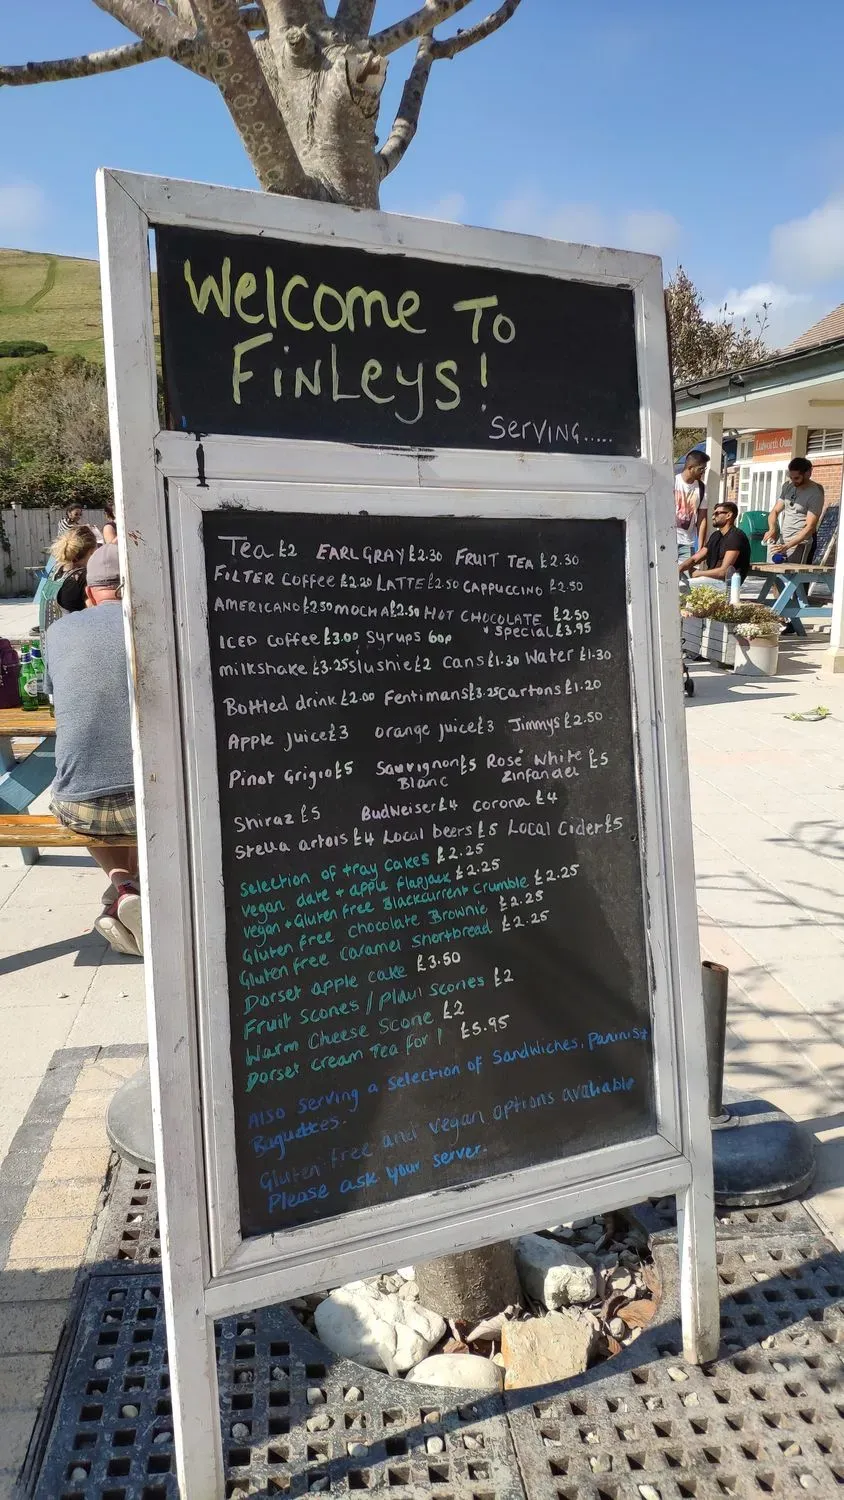 Welcome To
FinLeys!
Serving.....
Tea £2 EARL GRAY £2.30 FRUIT TEA £2.30
FILTER COFFEE £2.20 LATTE £2.50 CAPPUCCINO £2.50
AMERICANO £2.50 MOCHA £2.50 HOT CHOCOLATE £2.50
* Special £3.95
ICED COFFEE £3.00 Syrups 60p
milkshake £3.25 Slushie £2 Cans £1.30 Water £1.30
Bottled drink £2.00 Fentimans £3.25 Cartons £1.20
Apple juice £3 orange juice £3 Jimmys £2.50
Pinot Grigio £5 Sauvignon £5 Rosé White £5
Blanc Zinfandel
Shiraz £5 Budweiser £4 corona £4
Stella artois £4 Local beers £5 Local Cider £5
Selection of tray cakes £2.25
vegan date + apple flapjack £2.25
vegan + Gluten free Blackcurrent Crumble £2.25
Gluten free chocolate Brownie £2.25
Gluten free Caramel Shortbread £2.25
Dorset apple cake £3.50
Fruit Scones / Plain Scones £2
Warm Cheese Scone £2
Dorset cream Tea for 1 £5.95
Also serving a selection of Sandwiches, Paninis +
Baguettes.
Gluten free and vegan options avaliable
Please ask your server.
Lulworth